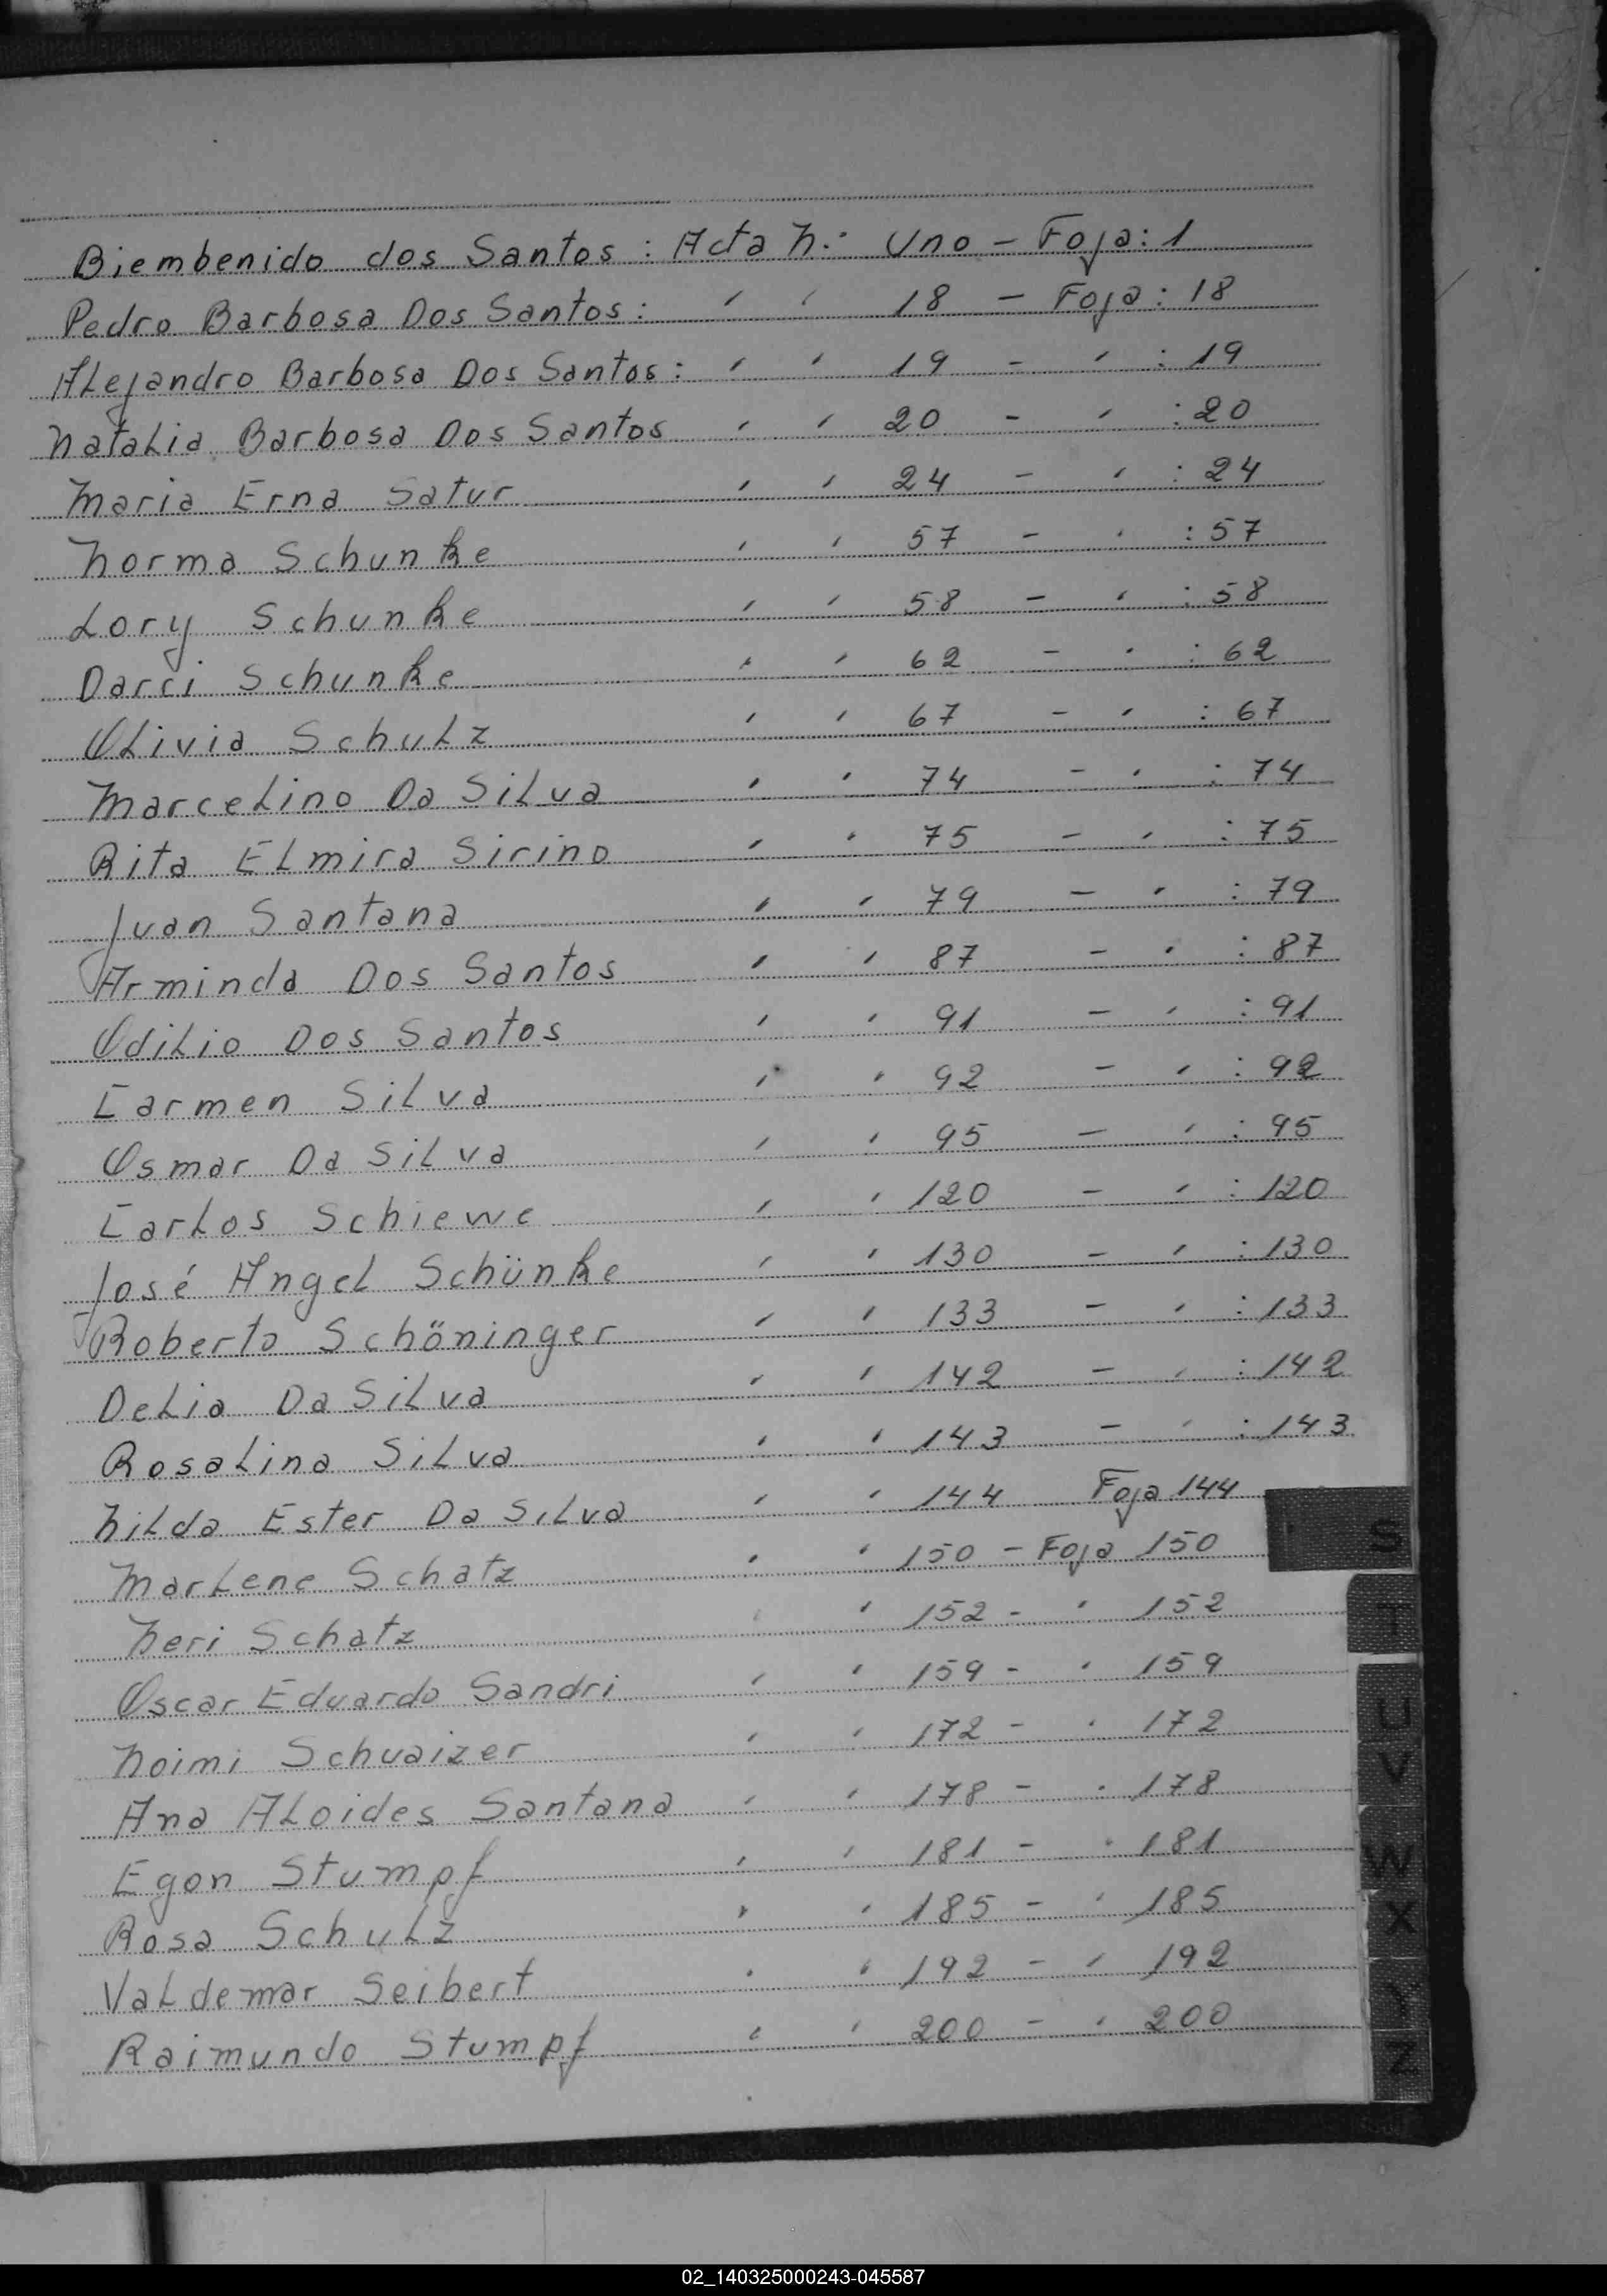 Biembenido dos Santos : Acta N.: Uno - Foja: 1
Pedro Barbosa Dos Santos: ′ ′ 18 - Foja: 18
Alejandro Barbosa Dos Santos: ′ ′ 19 - ′ : 19
Natalia Barbosa Dos Santos ′ ′ 20 - ′ : 20
Maria Erna Satur ′ ′ 24 - ′ : 24
Norma Schunke ′ ′ 57 - ′ : 57
Lory Schunke ′ ′ 58 - ′ : 58
Darci Schunke ′ ′ 62 - ′ : 62
Olivia Schulz ′ ′ 67 - ′ : 67
Marcelino Da Silva ′ ′ 74 - ′ : 74
Rita Elmira Sirino ′ ′ 75 - ′ : 75
Juan Santana ′ ′ 79 - ′ : 79
Arminda Dos Santos ′ ′ 87 - ′ : 87
Odilio Dos Santos ′ ′ 91 - ′ : 91
Carmen Silva ′ ′ 92 - ′ : 92
Osmar Da Silva ′ ′ 95 - ′ : 95
Carlos Schiewe ′ ′ 120 - ′ : 120
José Angel Schünke ′ ′ 130 - ′ : 130
Roberto Schöninger ′ ′ 133 - ′ : 133
Delia Da Silva ′ ′ 142 - ′ : 142
Rosalina Silva ′ ′ 143 - ′ : 143
Nilda Ester Da Silva ′ ′ 144 Foja 144
Marlene Schatz ′ ′ 150 - Foja 150
Neri Schatz ′ ′ 152 - ′ 152
Oscar Eduardo Sandri ′ ′ 159 - ′ 159
Noimi Schuaizer ′ ′ 172 - ′ 172
Ana Aloides Santana ′ ′ 178 - ′ 178
Egon Stumpf ′ ′ 181 - ′ 181
Rosa Schulz ′ ′ 185 - ′ 185
Valdemar Seibert ′ ′ 192 - ′ 192
Raimundo Stumpf ′ ′ 200 - ′ 200
S
T
U
V
W
X
Z
02_140325000243-045587